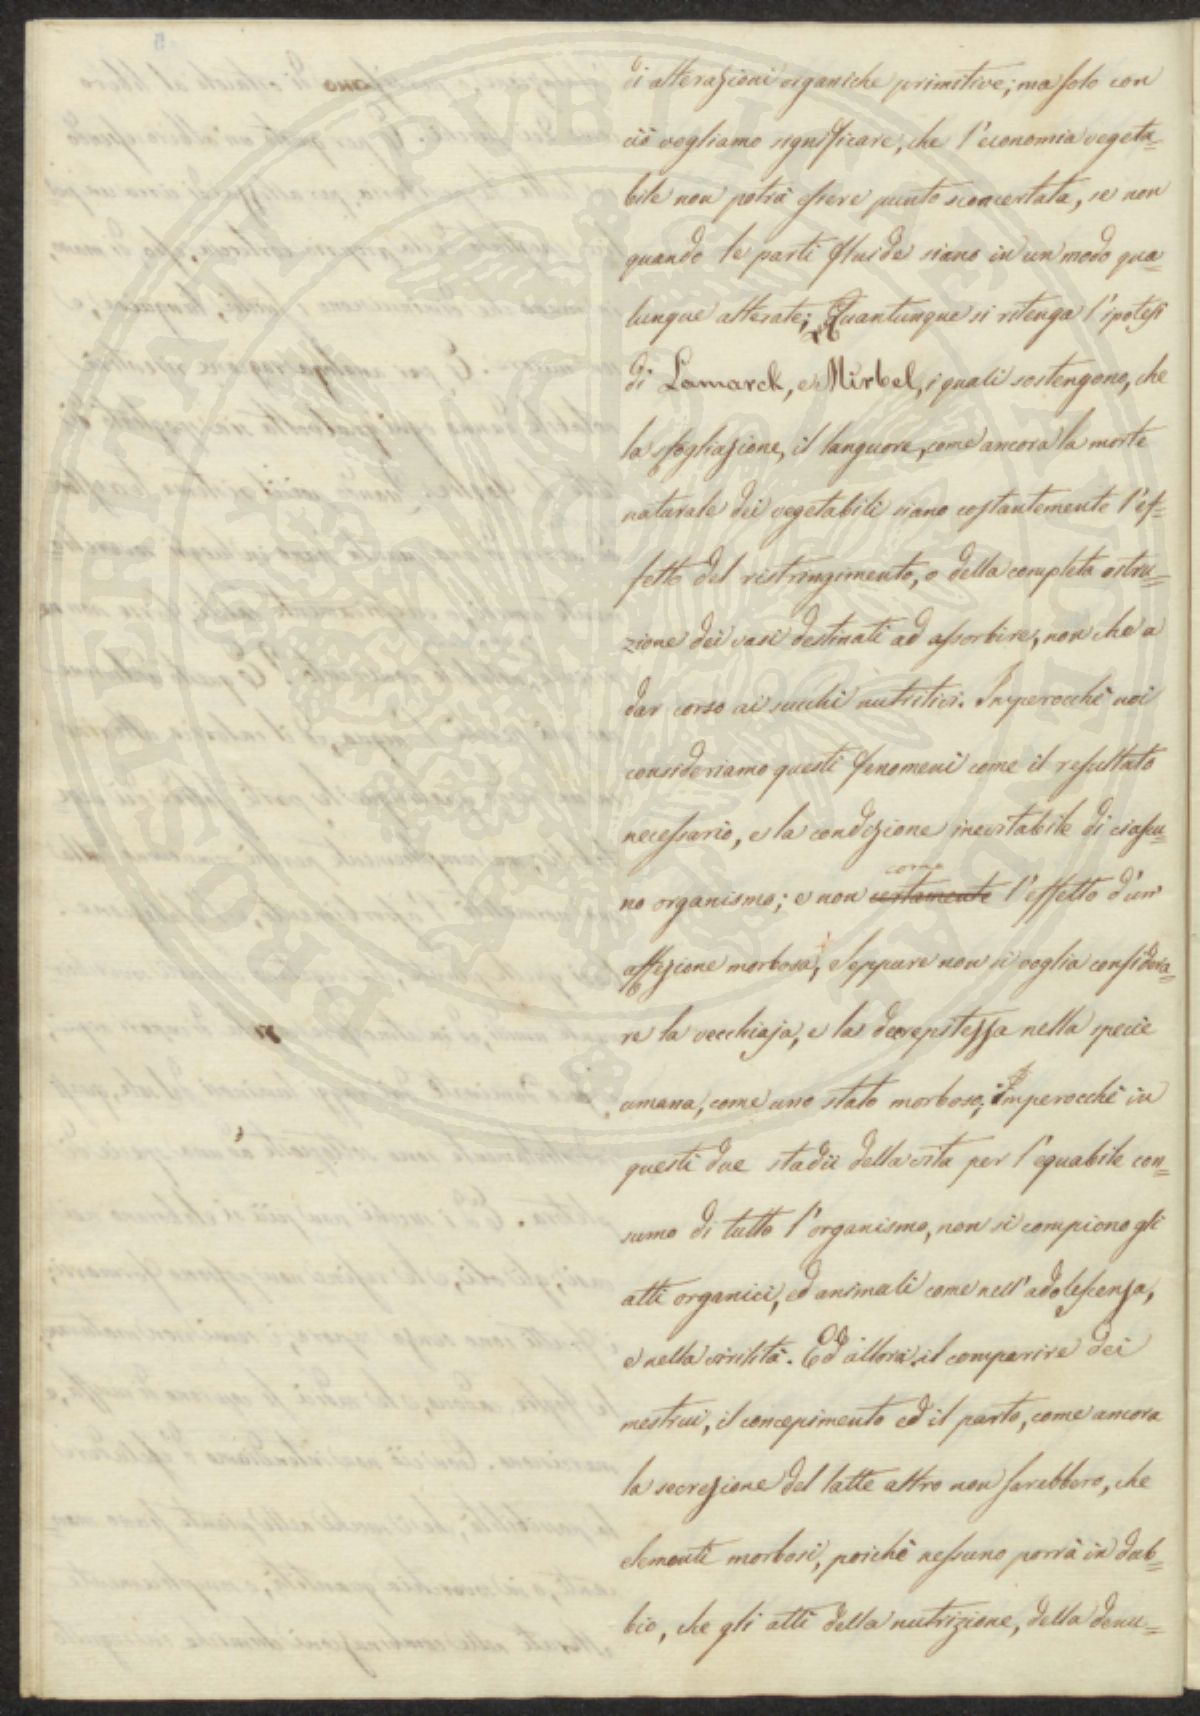 di alterazioni organiche primitive; ma solo con
ciò vogliamo significare, che l'economia vegeta=
bile non potrà essere punto sconcertata, se non
quando le parti fluide siano in un modo qua=
lunque alterate; Quantunque si ritenga l'ipotesi
di Lamarck, e Mirbel, i quali sostengono, che
la sfogliazione, il languore, come ancora la morte
naturale dei vegetabili siano costantemente l'ef=
fetto del ristringimento, o della completa ostru=
zione dei vasi destinati ad assorbire, non che a
dar corso ai succhi nutritivi. Imperocchè noi
consideriamo questi fenomeni come il resultato
necessario, e la condizione inevitabile di ciascu=
no organismo; e non come certamente l'effetto d'un'
affezione morbosa; Seppure non si voglia considera=
re la vecchiaja, e la decrepitezza nella specie
umana, come uno stato morboso; Imperocchè in
questi due stadii della vita per l'equabile con=
sumo di tutto l'organismo, non si compiono gli
atti organici, ed animali come nell'adolescenza,
e nella virilità. Ed allora il comparire dei
mestrui, il concepimento ed il parto, come ancora
la secrezione del latte altro non sarebbero, che
elementi morbosi, poichè nessuno porrà in dub=
bio, che gli atti della nutrizione, della denu=